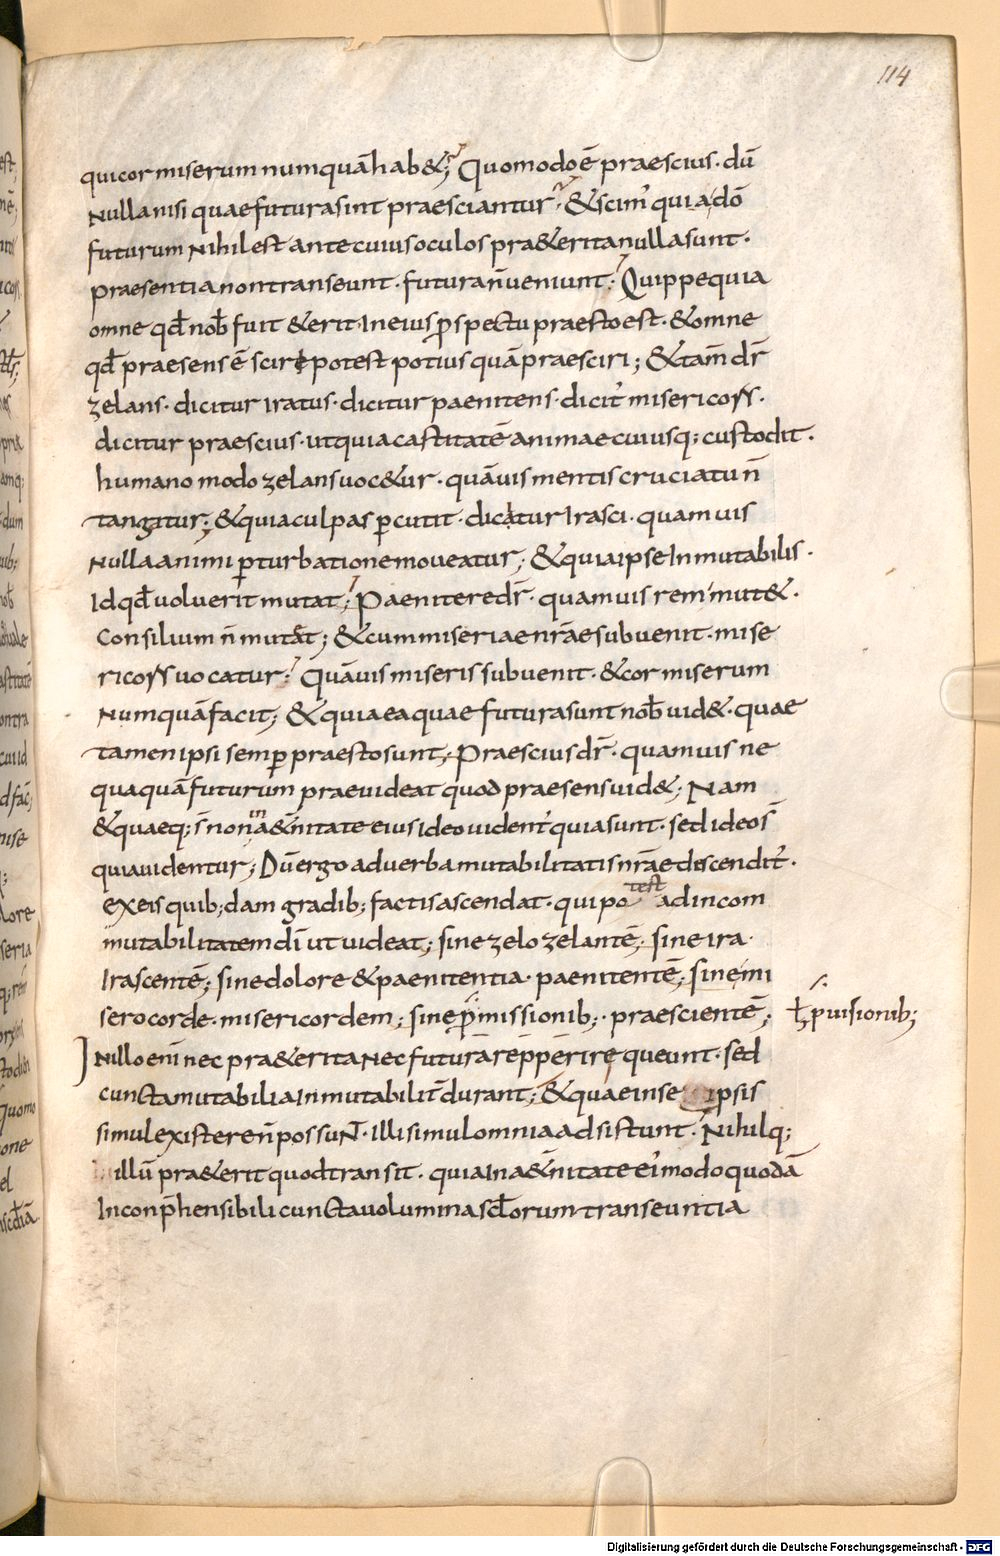 114
qui cor miserum numquā hab&; Quomodo ē praescius · dū
Nulla nisi quae futura sint praesciantur; & scim' quia dō
futurum Nihil est ante cuius oculos pra&erita nulla sunt ·
praesentia non transeunt · futura n̄ veniunt; Quippe quia
omne qd̄ nob̄ fuit & erit · In eius p̄spectu praesto est · & omne
qd̄ praesens ē scire potest potius quā praesciri; & tam̄ dr̄
zelans · dicitur iratus · dicitur paenitens · dicit' misericors ·
dicitur praescius · ut quia castitatē animae cuiusq; custodit ·
humano modo zelans uoc&ur · quāuis mentis cruciatu n̄
tangatur; & quia culpas ꝑcutit · dicatur Irasci · quamuis
Nulla animi ꝑturbatione moveatur; & quia ipse Inmutabilis ·
Id qd̄ uoluerit mutat; Paenitere dr̄ · quamuis rem mut& ·
Consilium n̄ mutat; & cum miseriae nr̄ae subuenit · mise
ricors uocatur; Quāuis miseris subuenit · & cor miserum
Numquā facit; & quia ea quae futura sunt nob̄ uid& · quae
tamen ipsi semꝑ praesto sunt; Praescius dr̄ · quamuis ne
quaquā futurum praevideat quod praesens uid&; Nam
& quaeq; s̄ non ma &̄nitate eius Ideo uident' quia sunt · sed ideo s̄
quia uidentur; Dū ergo ad verba mutabilitatis nr̄ae discendit' ·
ex eis quib;dam gradib; factis ascendat · qui potest ad incom
mutabilitatem dī ut uideat; sine zelo zelantē; sine ira ·
Irascentē; sine dolore & paenitentia · paenitentē; sine mi
sero corde · misericordem; sine p̄missionib; · praescientē;
ł ꝑuisionib;
In illo enī nec pra&erita Nec futura repperire queunt · sed
cuncta mutabilia Inmutabilit̄ durant; & quae in se ipsis
simul existere n̄ possunt · Illi simul omnia adsistunt · Nihilq;
illū pra&erit quod transit · quia In a&̄nitate ei' modo quodā
Inconp̄hensibili cuncta uolumina scl̄orum transeuntia
Digitalisierung gefördert durch die Deutsche Forschungsgemeinschaft - DFG